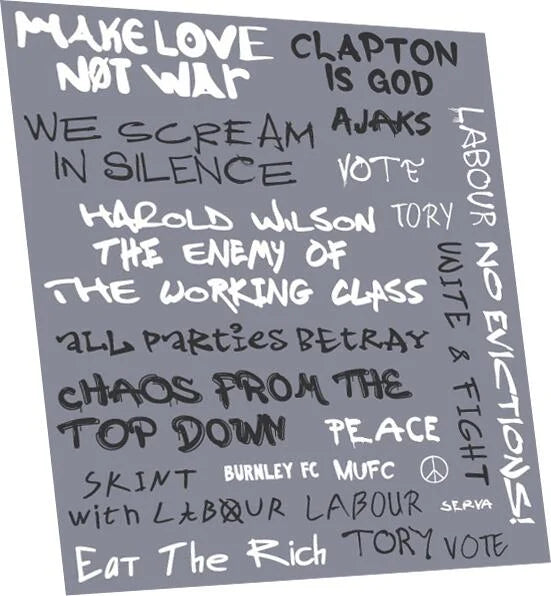 MAKE LOVE
NØT WAr
CLAPTON
IS GOD
AJAKS
WE SCREAM
IN SILENCE
VOTE
TORY
LABOUR
HAROLD WILSON
THE ENEMY OF
THE WORKING CLASS
NO EVICTIONS!
UNITE & FIGHT
aLL ParTies BETRAY
CHAOS FROM THE
TOP DOWN
PEACE
SKINT
BURNLEY FC
MUFC
with LABOUR
LABOUR
SERVA
EaT The Rich
TORY VOTE